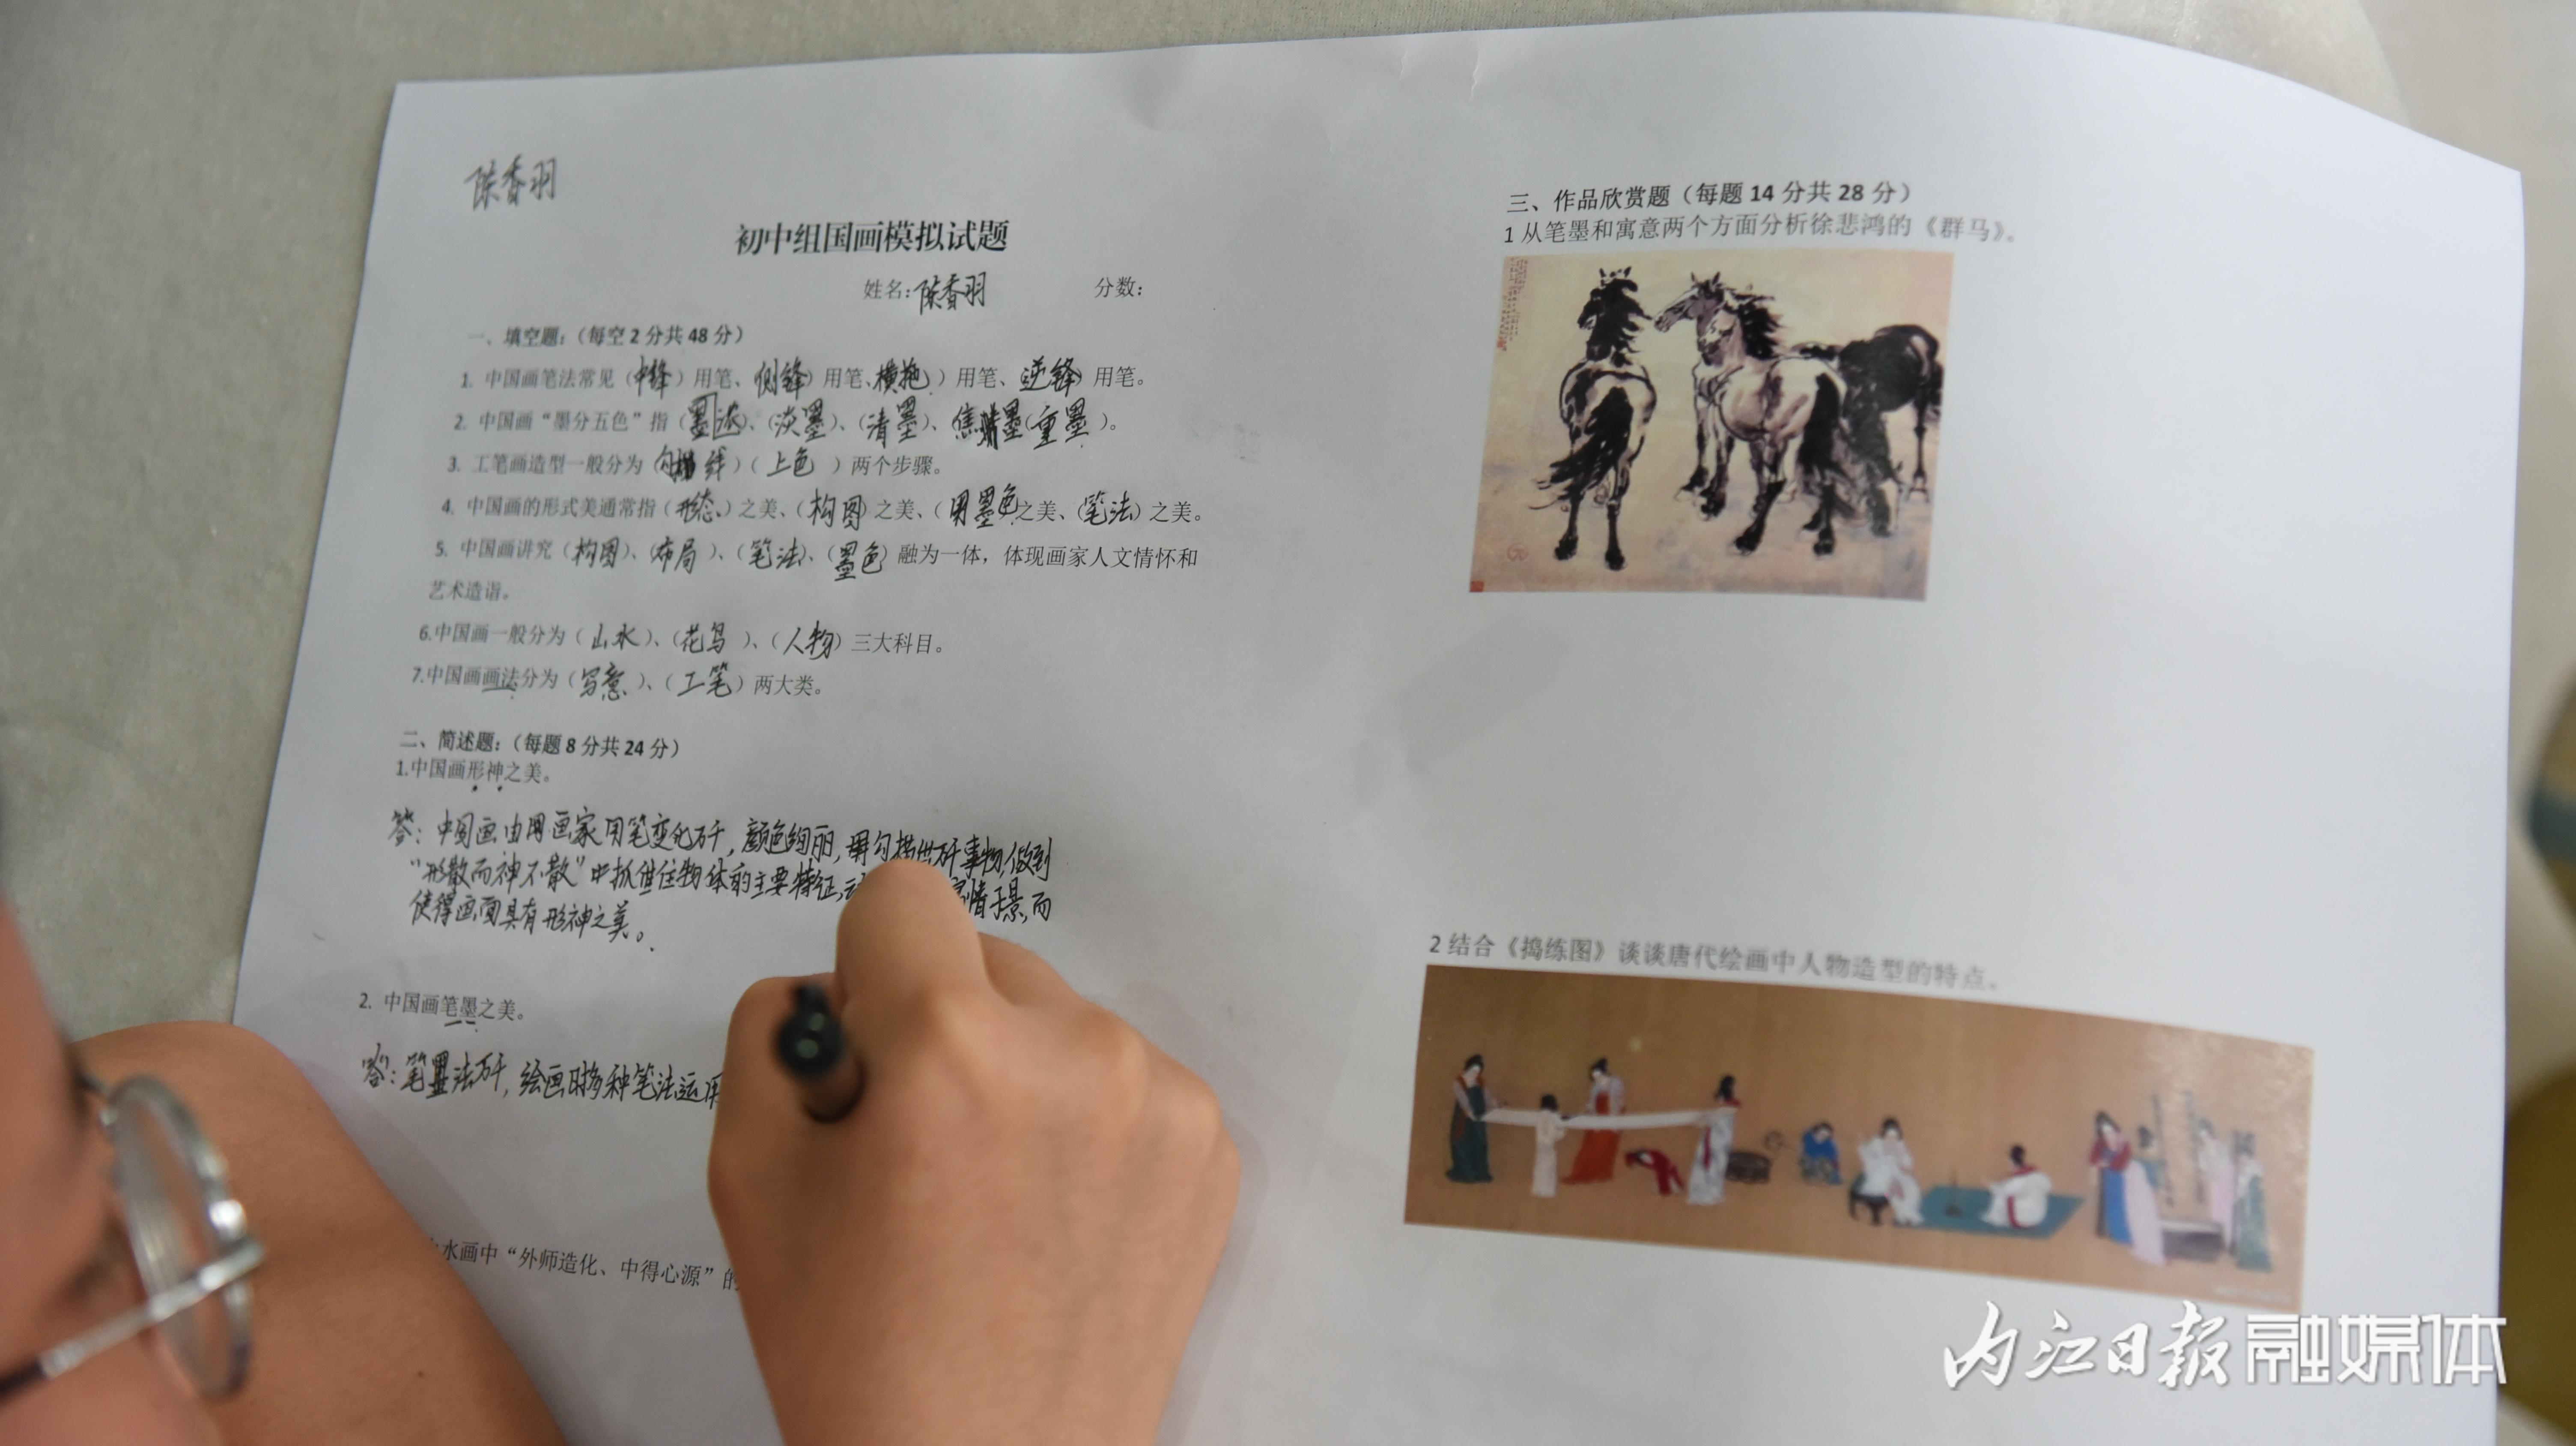 陈香羽
初中组国画模拟试题
姓名:陈香羽 分数:
一、填空题:(每空2分共48分)
1. 中国画笔法常见(中锋)用笔、侧锋)用笔、横拖)用笔、逆锋)用笔。
2. 中国画“墨分五色”指(墨浓)、(淡墨)、(清墨)、焦墨(重墨)。
3. 工笔画造型一般分为(勾线)(上色)两个步骤。
4. 中国画的形式美通常指(形态)之美、(构图)之美、(用墨色之美、(笔法)之美。
5. 中国画讲究(构图)、(布局)、(笔法)、(墨色)融为一体，体现画家人文情怀和
艺术造诣。
6.中国画一般分为(山水)、(花鸟)、(人物)三大科目。
7.中国画画法分为(写意)、(工笔)两大类。
二、简述题:(每题8分共24分)
1.中国画形神之美。
答:中国画由用画家用笔变化万千,颜色绚丽,用勾描 万千事物,做到
“形散而神不散”中抓住物体的主要特征, 情于景,而
使得画面具有形神之美。
2. 中国画笔墨之美。
答:笔墨法万千,绘画时多种笔法运用
水画中“外师造化、中得心源”的
三、作品欣赏题(每题14分共28分)
1 从笔墨和寓意两个方面分析徐悲鸿的《群马》。
2 结合《捣练图》谈谈唐代绘画中人物造型的特点。
内江日报融媒体